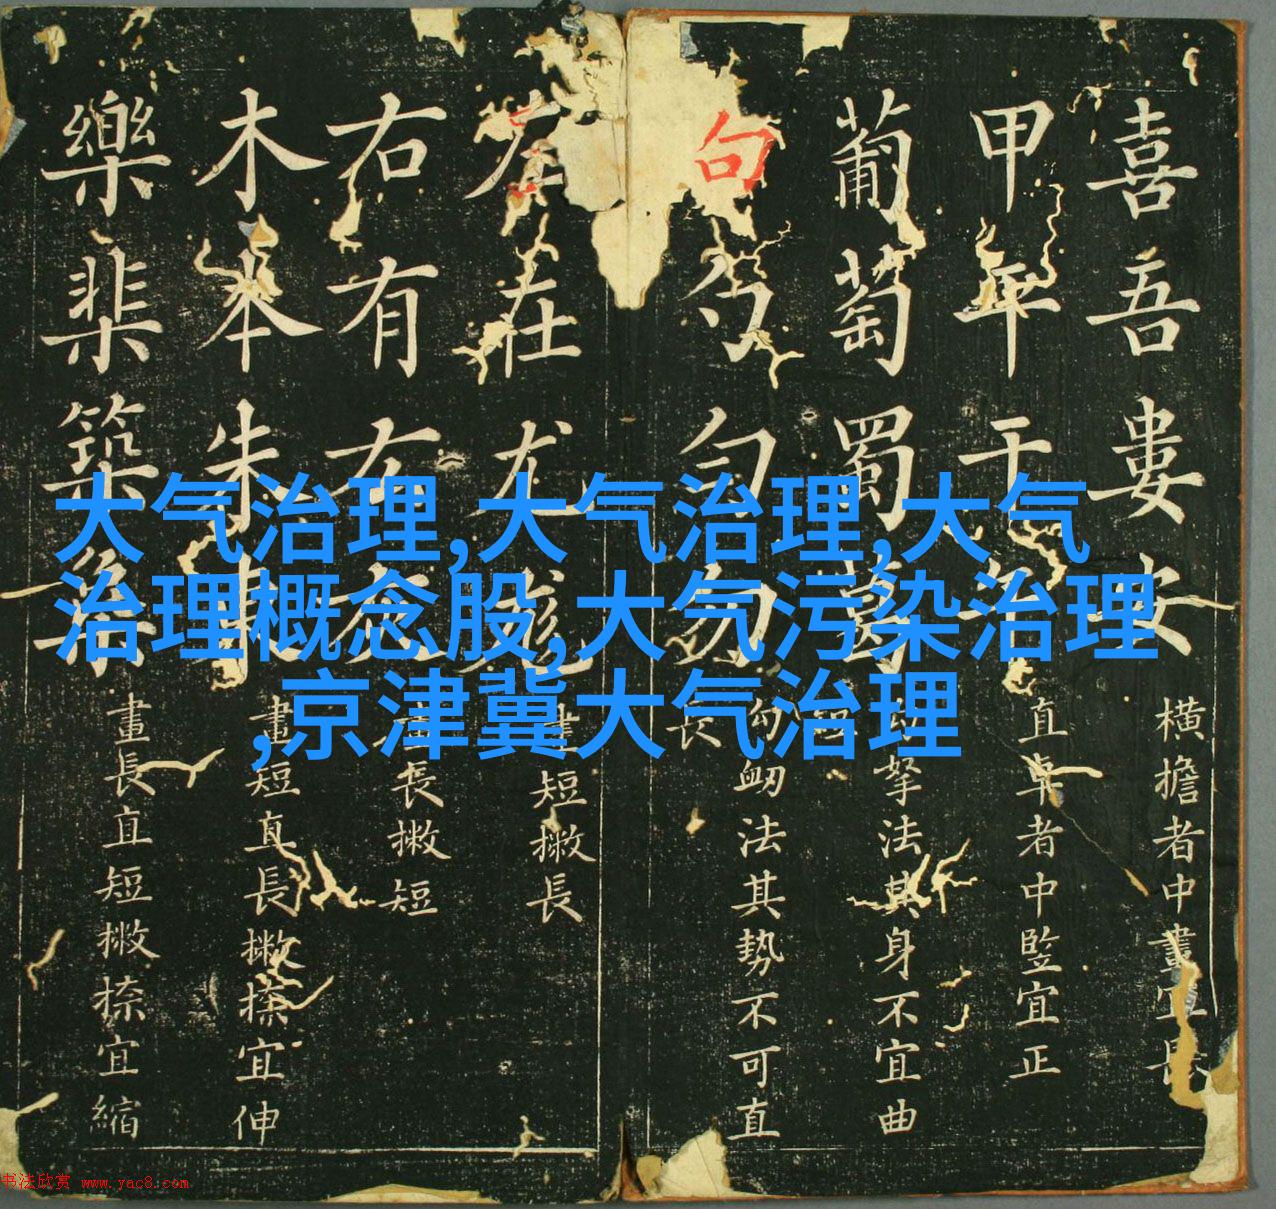 喜吾婁安
横擔者中畫宜
甲平干
直卓者中竪宜正
葡萄蜀葛
拏法其身不宜曲
句勺匀勿
勾衂法其勢不可直
在尤尨
畫短撇長
右有
畫長撇短
木本朱
畫短直長撇捺宜伸
樂棐築
畫長直短撇捺宜縮
大气治理,大气治理,大气
治理概念股,大气污染治理
,京津冀大气治理
书法欣赏 www.yac8.com